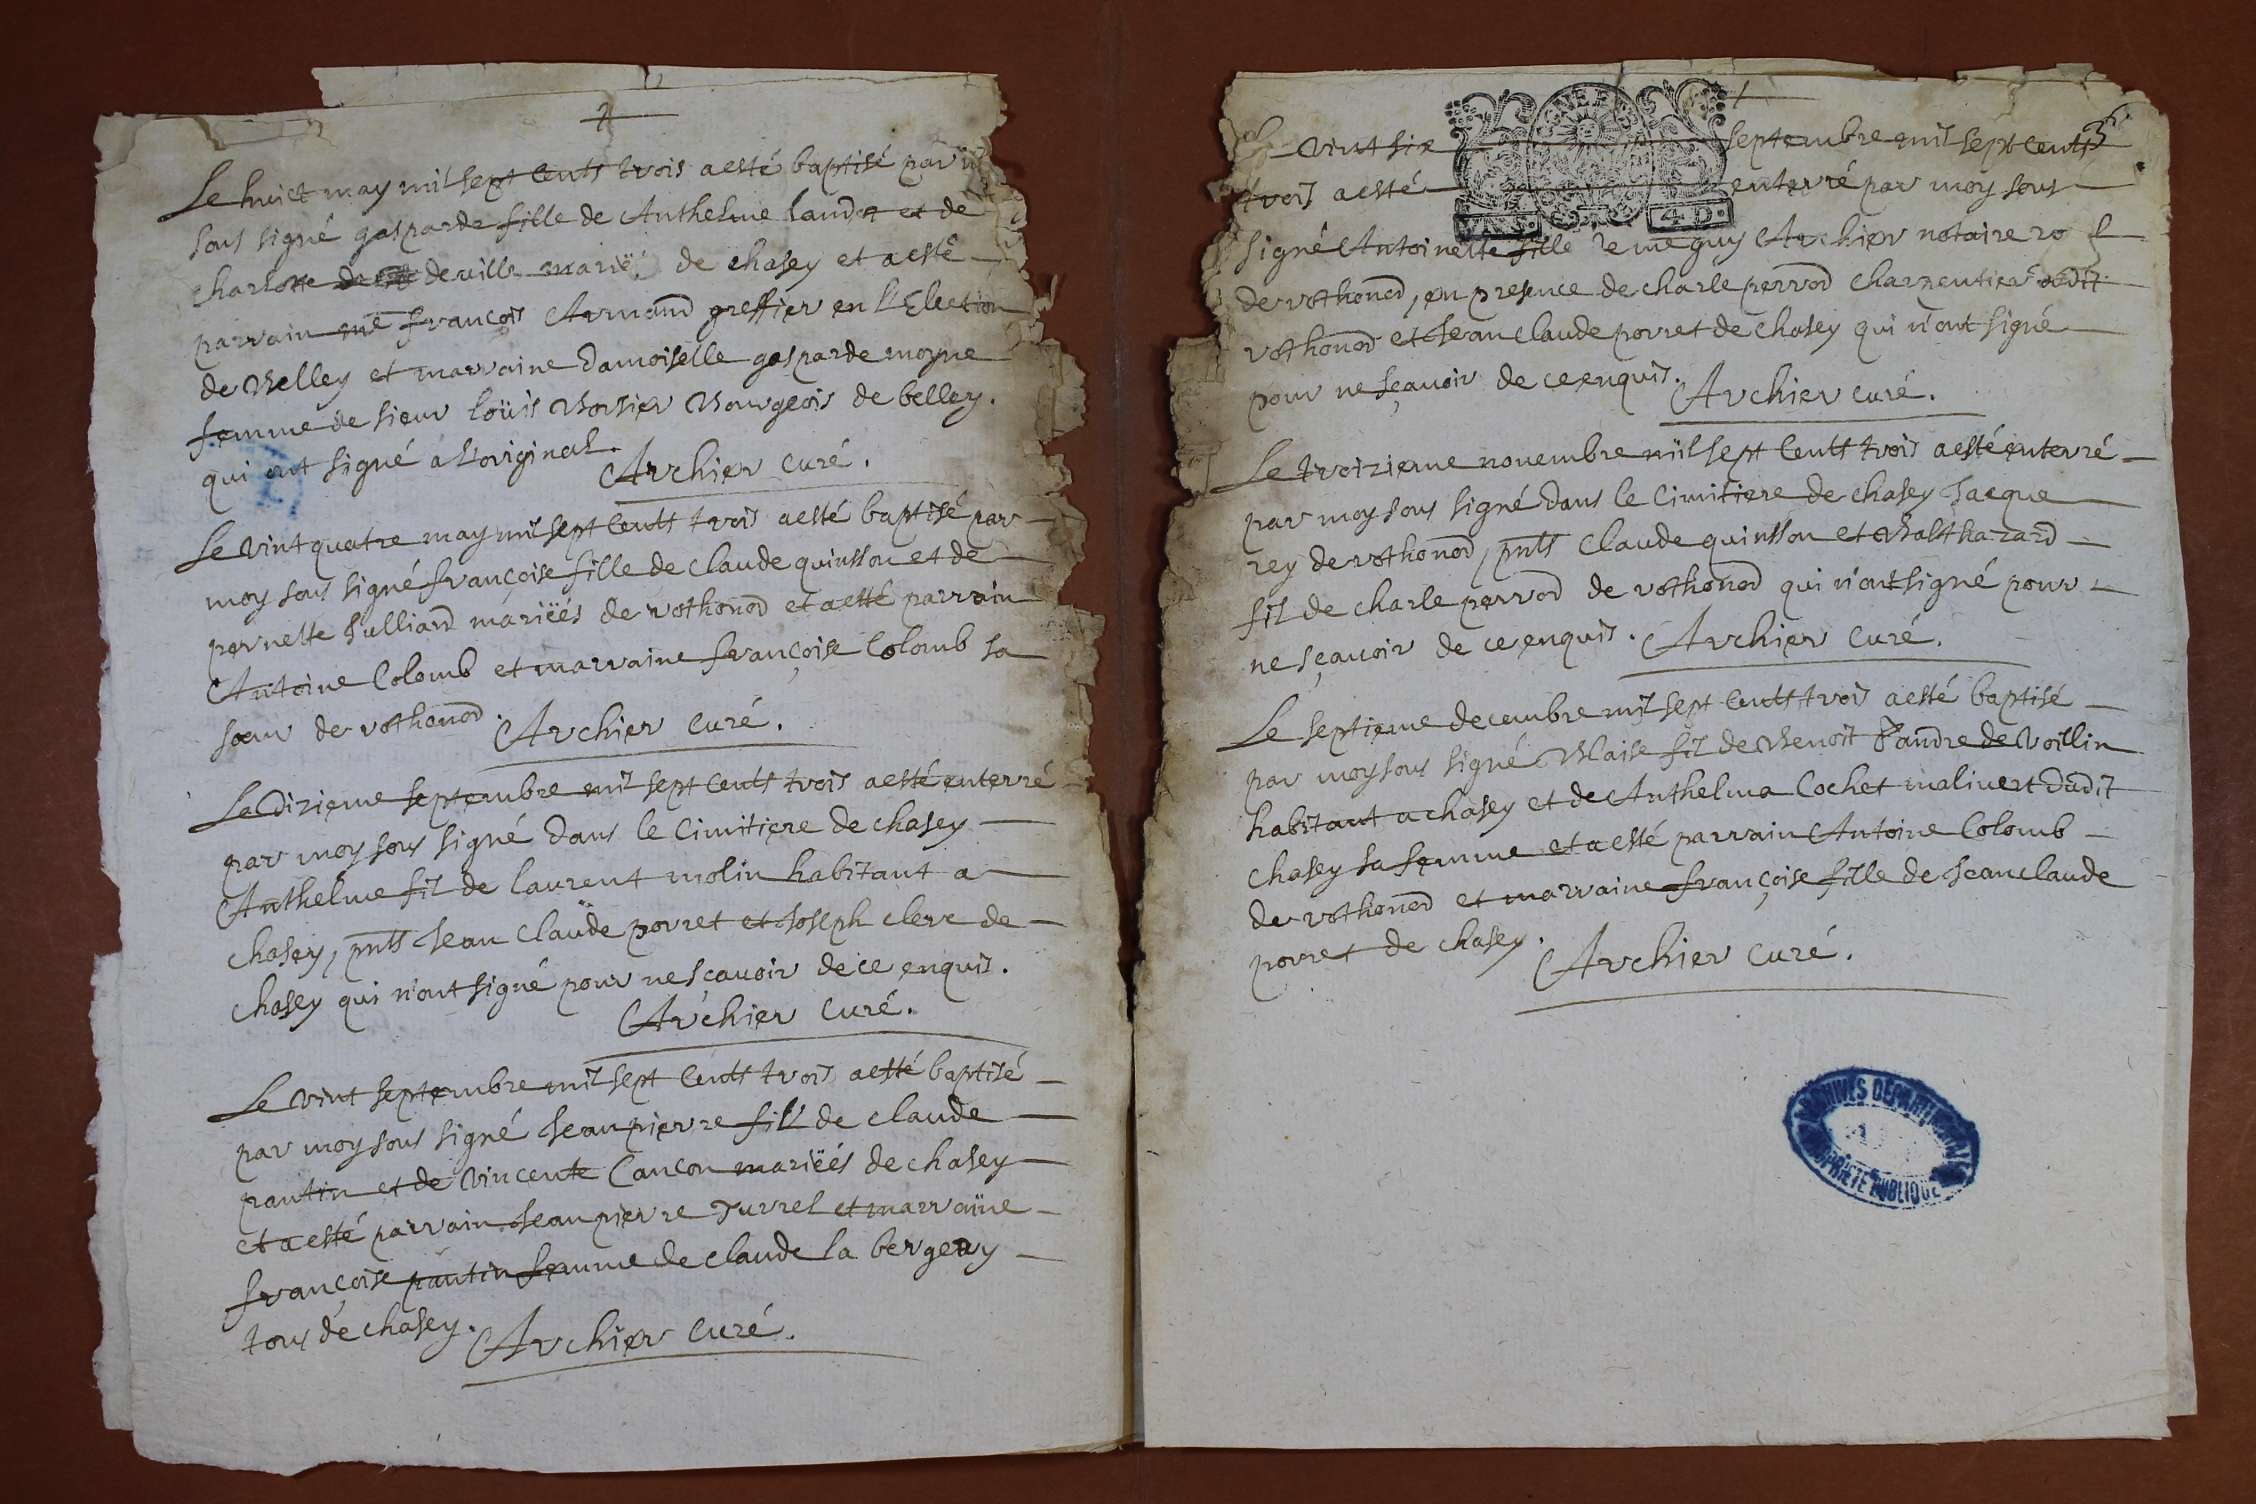 Le huict may mil sept cents trois a esté baptisé par
sous signé gasparde fille de Anthelme landa et de
charlotte de deville mariës de chasey et a esté
parrain me françois Armand greffier en l'Election
de Belley et marraine Damoiselle gasparde moyne
femme de sieur loüis Borsier Bourgeois de belley.
qui ont signé a l'original.
Archier curé.
Le vint quatre may mil sept cents trois a esté baptisé par
moy sous signé françoise fille de claude quinsson et de
pernette Julliard mariëés de rothonod et a esté parrain
Antoine Colomb et marraine françoise Colomb sa
soeur de rothonod.
Archier curé.
Le dizieme septembre mil sept cents trois a esté enterré
par moy sous signé dans le cimitiere de chasey
Anthelme fil de laurent molin habitant a
chasey, pnts Jean claude porret et Joseph clerc de
chasey qui n'ont signé pour ne sçavoir de ce enquis.
Archier curé.
Le vint septembre mil sept cents trois a esté baptisé
par moy sous signé Jean pierre fils de claude
pantin et de vincente Cançon mariëés de chasey
et a esté parrain Jean pierre Turrel et marraine
françoise pantin femme de claude la bergery
tous de chasey.
Archier curé.
3
Le vint six septembre mil sept cents
trois a esté enterré par moy sous
4 D.
signé Antoinette fille de me guy Archier notaire
de rothonod, en presence de charle perrod charpentier dudit
rothonod et Jean claude porret de chasey qui n'ont signé
pour ne sçavoir de ce enquis.
Archier curé.
Le troizieme novembre mil sept cents trois a esté enterré
par moy sous signé dans le cimitiere de chasey Jacque
rey de rothonod, pnts claude quinsson et Balthazard
fil de charle perrod de rothonod qui n'ont signé pour
ne sçavoir de ce enquis.
Archier curé.
Le septieme decembre mil sept cents trois a esté baptisé
par moy sous signé Blaise fil de Benoit Fandre de Voillin
habitant a chasey et de Anthelma Cochet malivert dudit
chasey sa femme et a esté parrain Antoine Colomb
de rothonod et marraine françoise fille de Jean claude
porret de chasey.
Archier curé.
ARCHIVES DEPARTEMENTALES
PROPRIETE PUBLIQUE